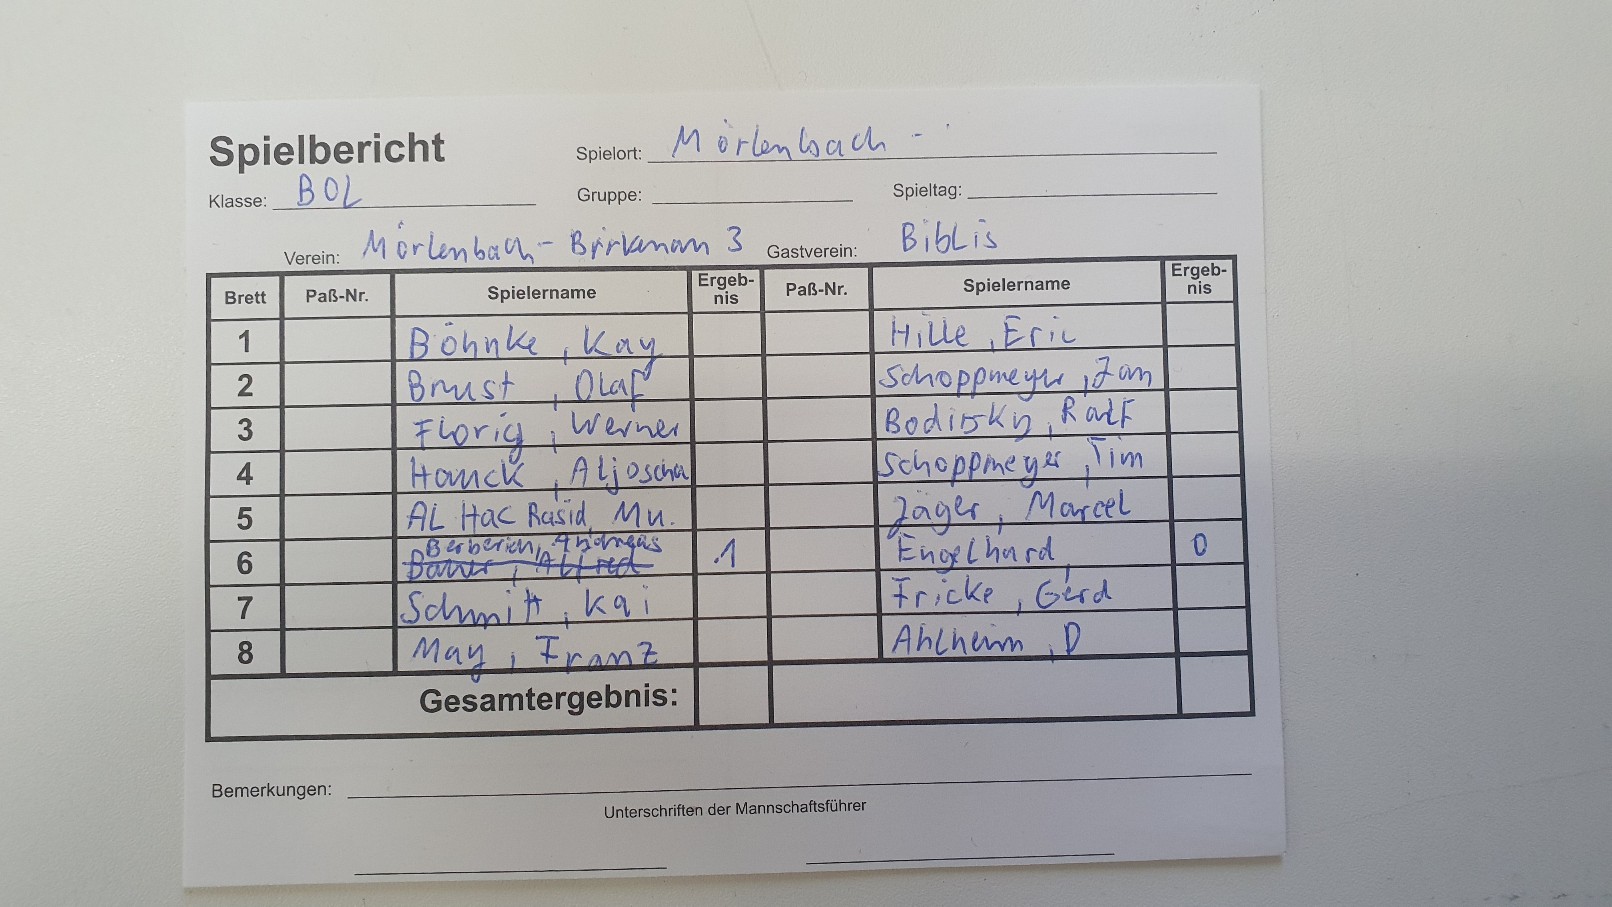 Spielbericht Spielort: Mörlenbach -
Klasse: BOL Gruppe: Spieltag:
Verein: Mörlenbach - Birkenau 3 Gastverein: Biblis
Brett Paß-Nr. Spielername Ergeb-nis Paß-Nr. Spielername Ergeb-nis
1 Böhnke, Kay Hille, Eric
2 Brust, Olaf Schoppmeyer, Jan
3 Florig, Werner Bodirsky, Ralf
4 Hauck, Aljoscha Schoppmeyer, Tim
5 AL Hac Rasid, Mu. Jäger, Marcel
Berberich, Andreas
6 Bauer, Alfred 1 Engelhard, 0
7 Schmitt, Kai Fricke, Gerd
8 May, Franz Ahlheim, D
Gesamtergebnis:
Bemerkungen:
Unterschriften der Mannschaftsführer